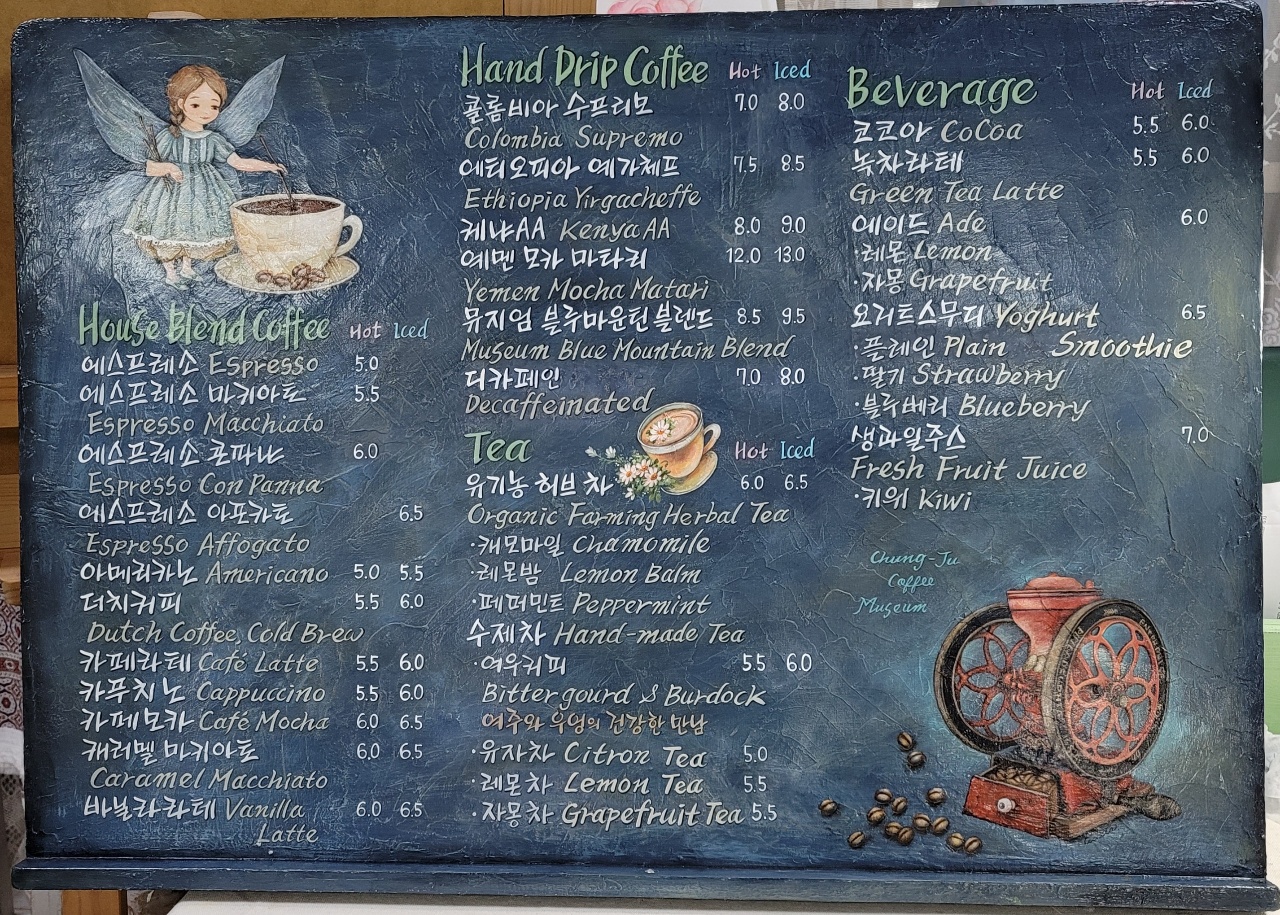 House Blend Coffee Hot Iced
에스프레소 Espresso 5.0
에스프레소 마키아토 5.5
Espresso Macchiato
에스프레소 콘파나 6.0
Espresso Con Panna
에스프레소 아포카토 6.5
Espresso Affogato
아메리카노 Americano 5.0 5.5
더치커피 5.5 6.0
Dutch Coffee, Cold Brew
카페라떼 Café Latte 5.5 6.0
카푸치노 Cappuccino 5.5 6.0
카페모카 Café Mocha 6.0 6.5
캐러멜 마키아토 6.0 6.5
Caramel Macchiato
바닐라라떼 Vanilla 6.0 6.5
Latte
Hand Drip Coffee Hot Iced
콜롬비아 수프리모 7.0 8.0
Colombia Supremo
에티오피아 예가체프 7.5 8.5
Ethiopia Yirgacheffe
케냐AA Kenya AA 8.0 9.0
예멘 모카 마타리 12.0 13.0
Yemen Mocha Matari
뮤지엄 블루마운틴 블렌드 8.5 9.5
Museum Blue Mountain Blend
디카페인 7.0 8.0
Decaffeinated
Tea Hot Iced
유기농 허브 차 6.0 6.5
Organic Farming Herbal Tea
·캐모마일 Chamomile
·레몬밤 Lemon Balm
·페퍼민트 Peppermint
수제차 Hand-made Tea
·여우커피 5.5 6.0
Bitter gourd & Burdock
여주와 우엉의 건강한 만남
·유자차 Citron Tea 5.0
·레몬차 Lemon Tea 5.5
·자몽차 Grapefruit Tea 5.5
Beverage Hot Iced
코코아 CoCoa 5.5 6.0
녹차라떼 5.5 6.0
Green Tea Latte
에이드 Ade 6.0
·레몬 Lemon
·자몽 Grapefruit
요거트스무디 Yoghurt 6.5
·플레인 Plain Smoothie
·딸기 Strawberry
·블루베리 Blueberry
생과일주스 7.0
Fresh Fruit Juice
·키위 Kiwi
Chung-Ju
Coffee
Museum